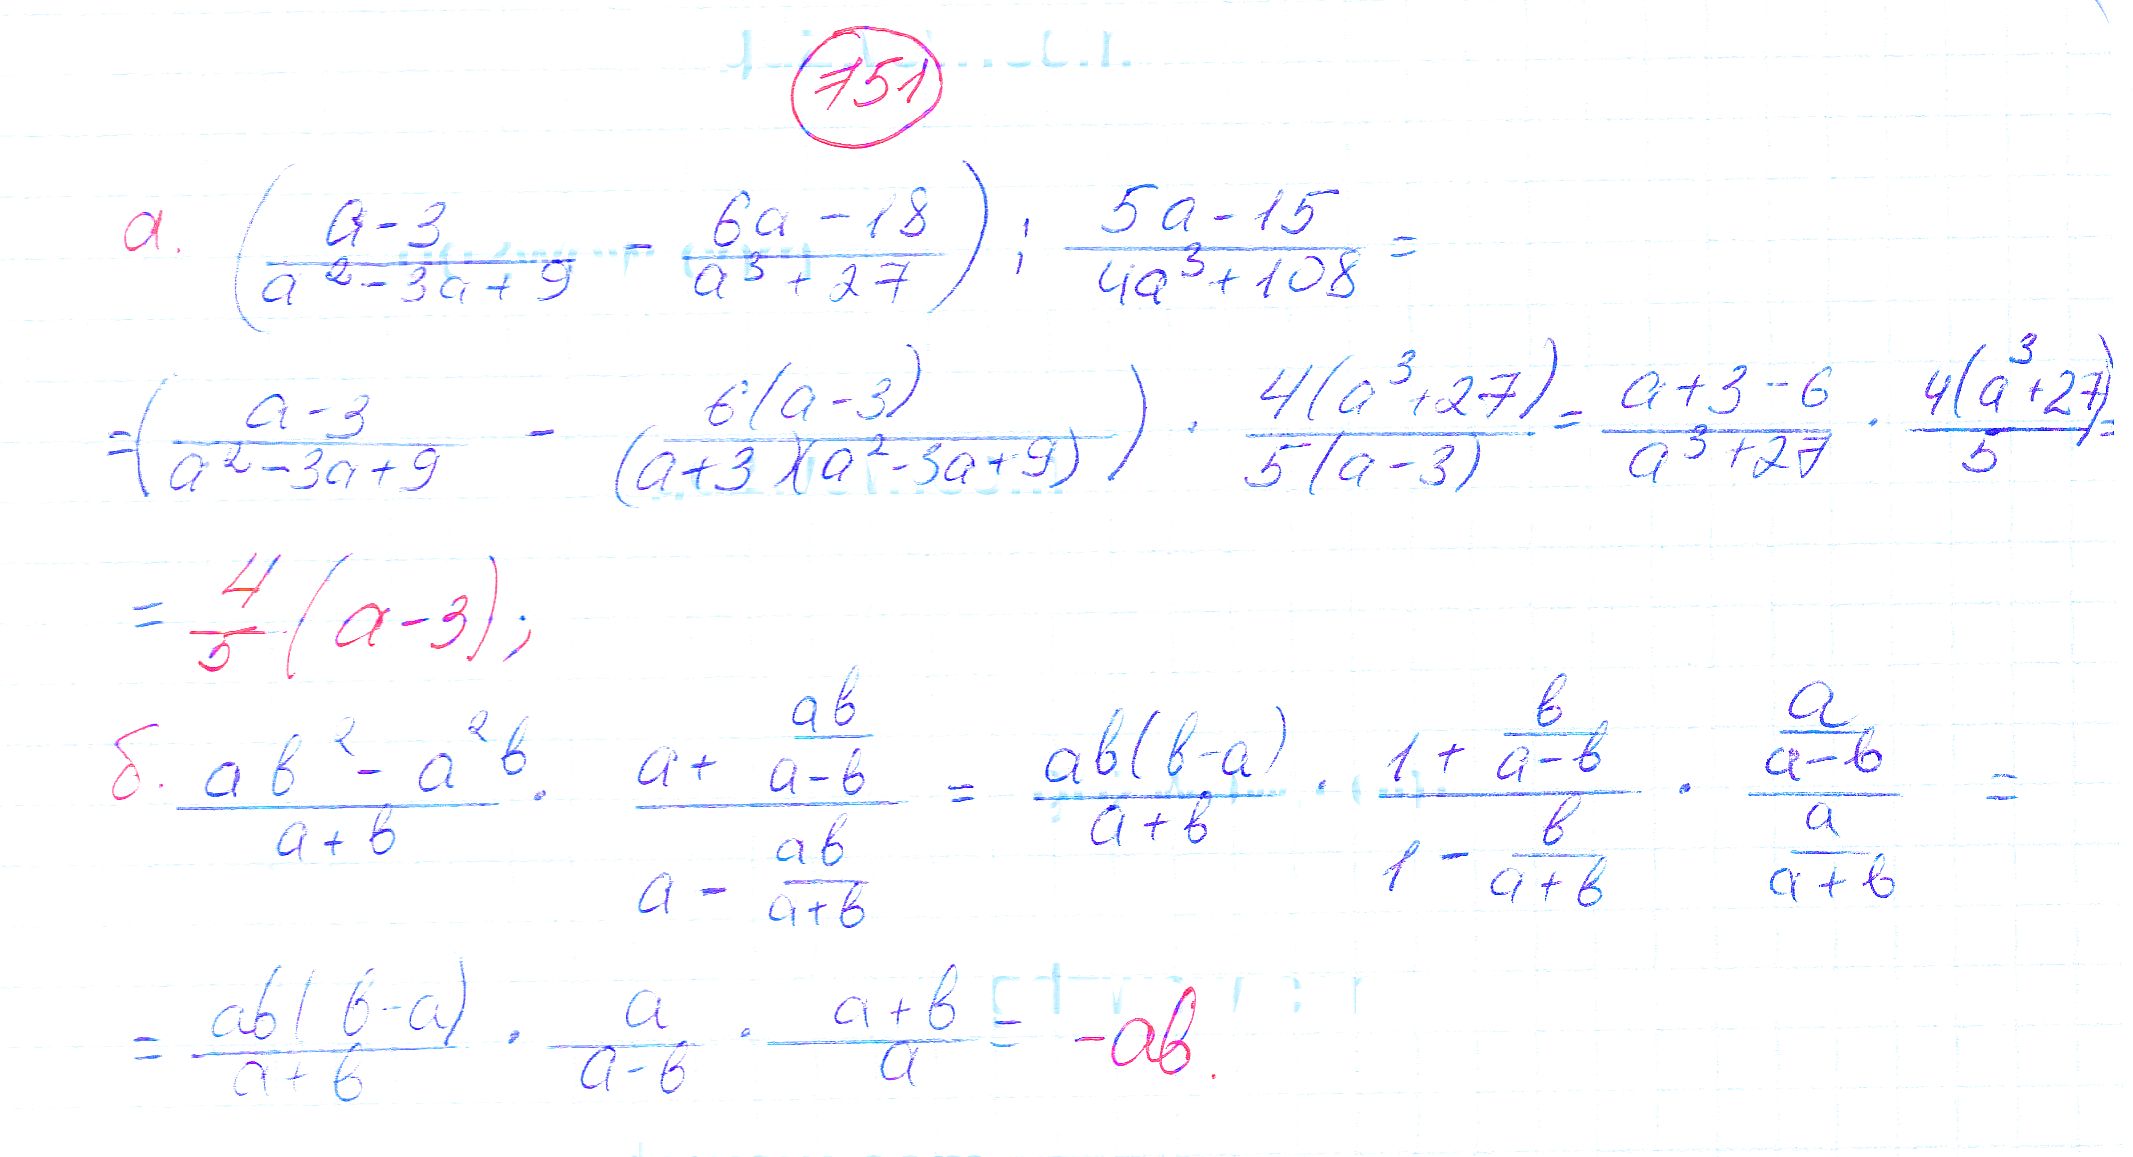 751
а. ((a-3)/(a²-3a+9) - (6a-18)/(a³+27)) : (5a-15)/(4a³+108) =
= ((a-3)/(a²-3a+9) - 6(a-3)/((a+3)(a²-3a+9))) · 4(a³+27)/(5(a-3)) = (a+3-6)/(a³+27) · 4(a³+27)/5 =
= 4/5 (a-3);
б. (ab²-a²b)/(a+b) · (a + ab/(a-b))/(a - ab/(a+b)) = ab(b-a)/(a+b) · (1 + b/(a-b))/(1 - b/(a+b)) · (a/(a-b))/(a/(a+b)) =
= ab(b-a)/(a+b) · a/(a-b) · (a+b)/a = -ab.